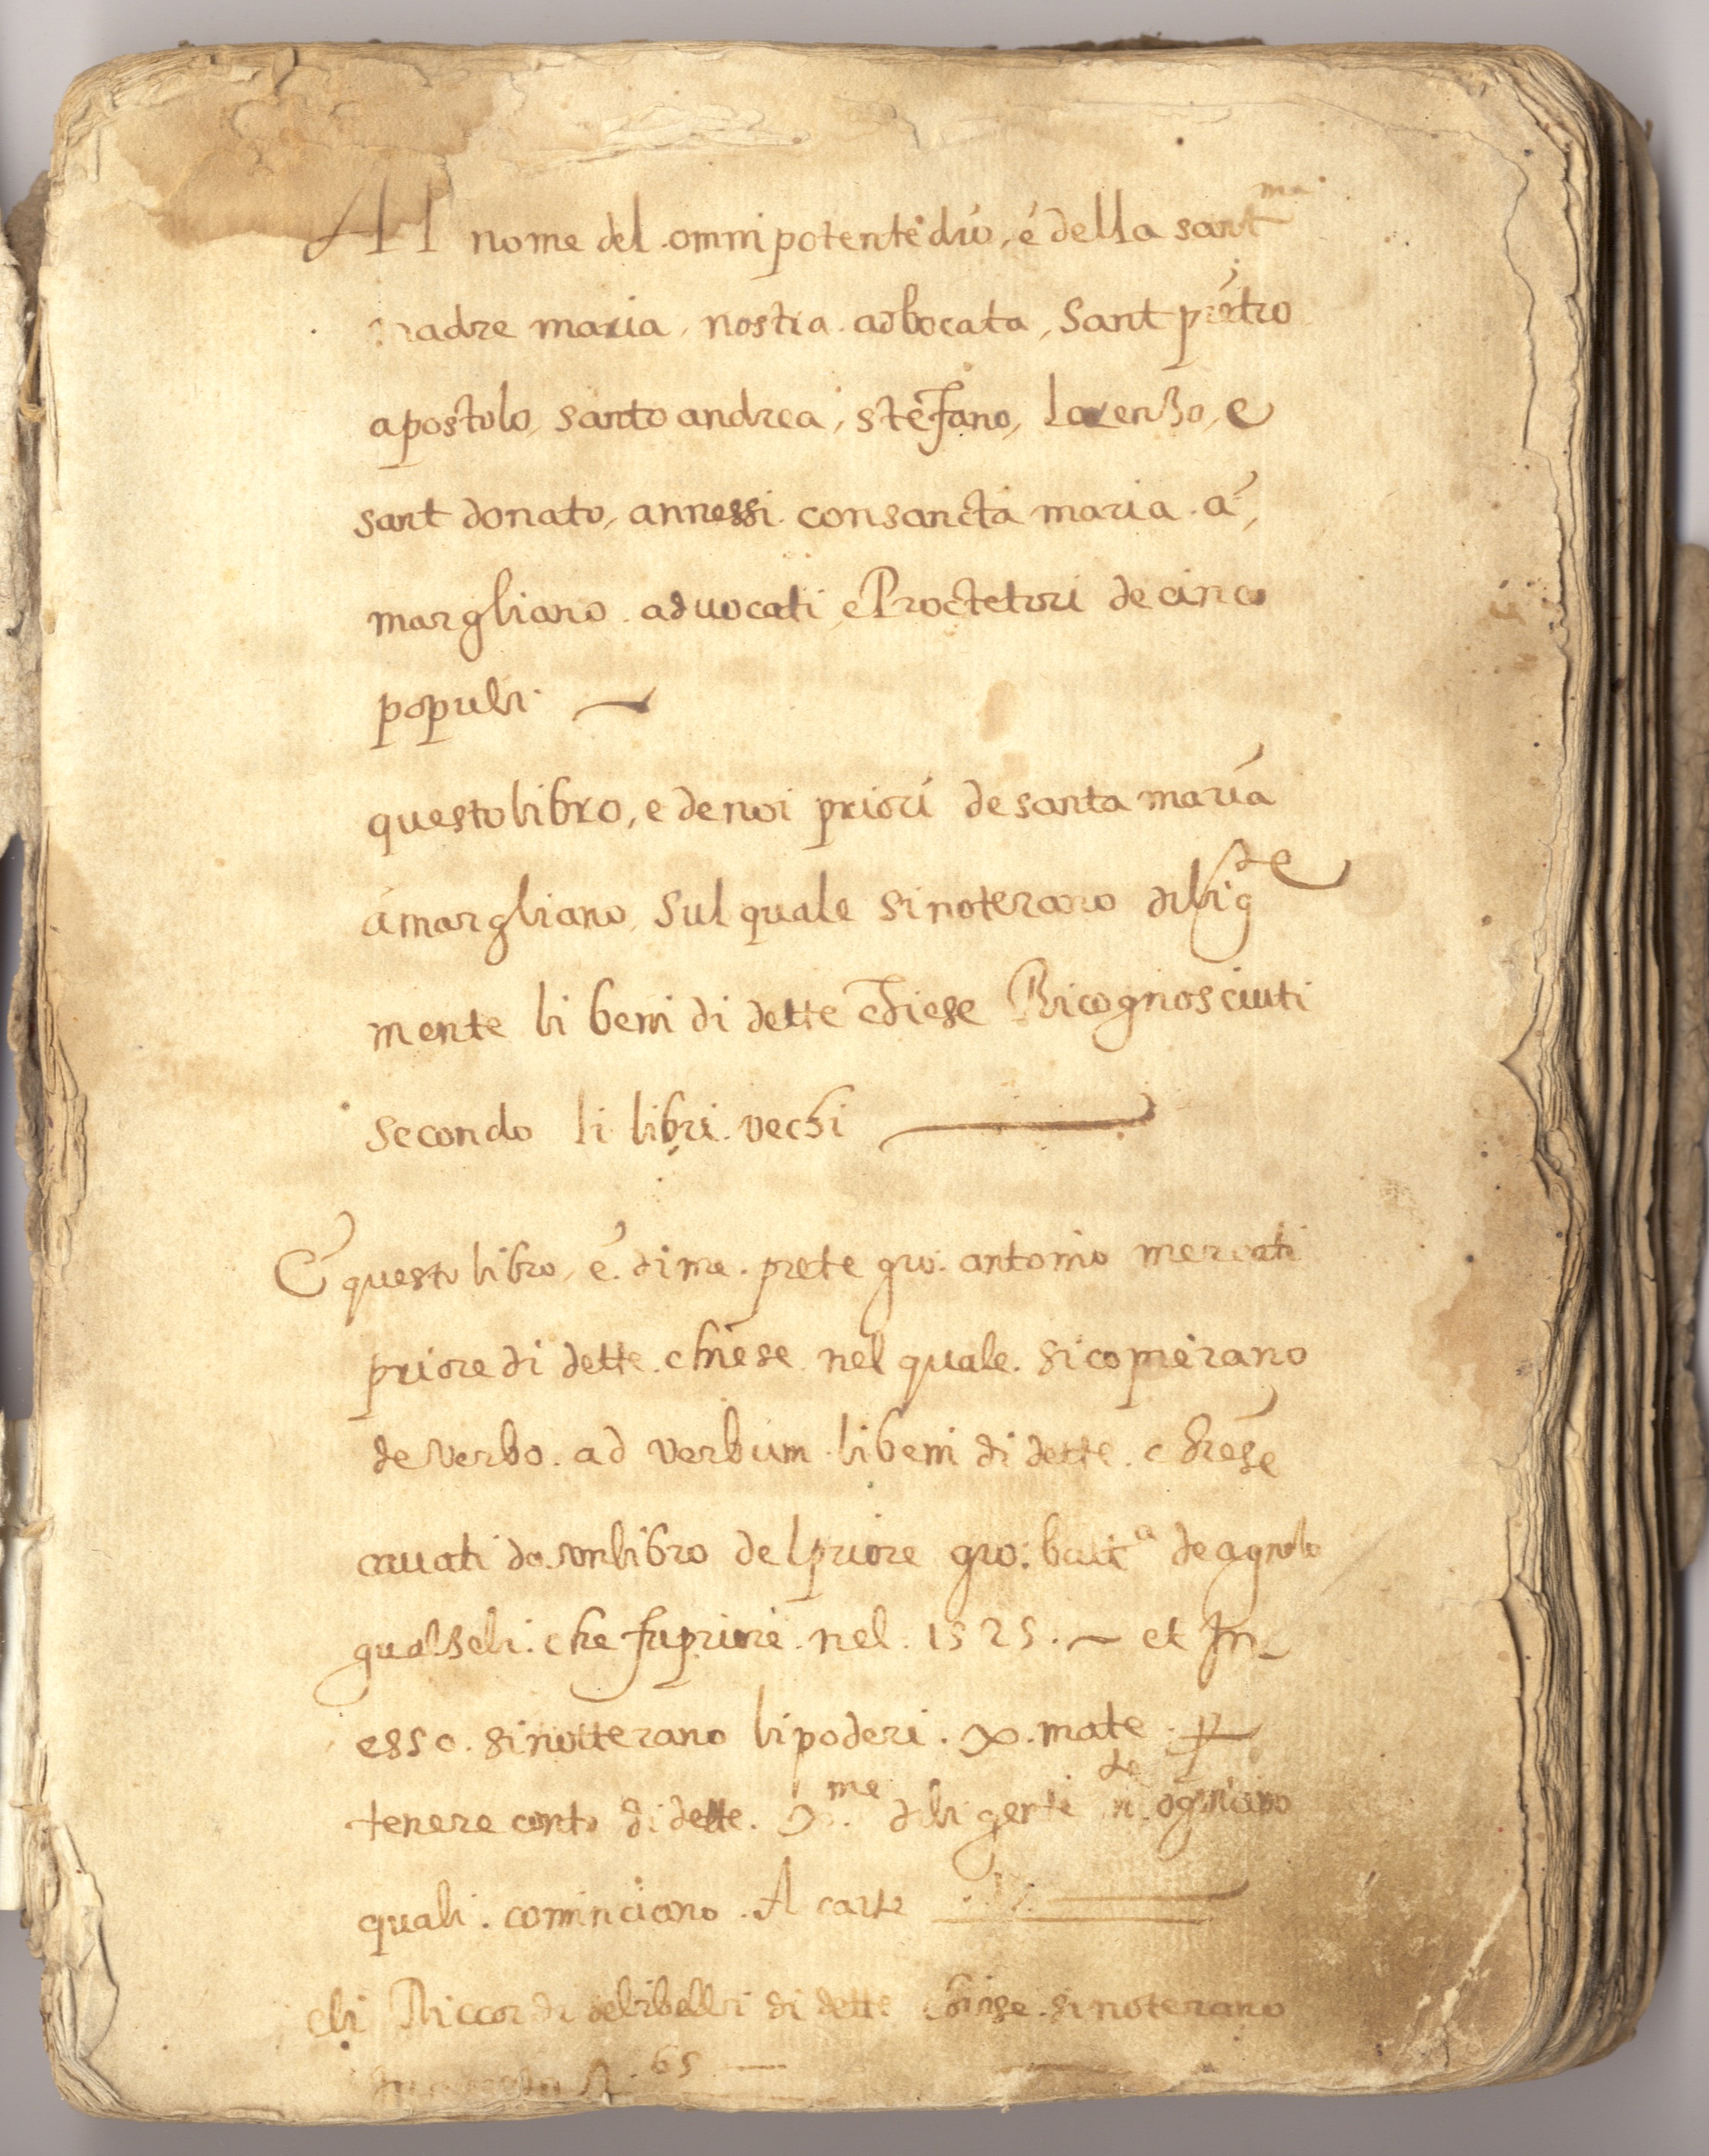 Al nome del omnipotente dio, é della sant^ma
madre maria, nostra advocata, Sant pietro
apostolo, santo andrea, stefano, Lorenzo, e
sant donato, annessi consancta maria. á,
margliano. advocati, e Proctetori de cinco
populi
questo libro, e de noi priori de santa maria
á margliano, Sul quale si noterano dilig^de
mente li beni di dette chiese Ricognosciuti
secondo li libri. vechi
E questo libro, é. di me. prete gio. antonio mercati
priore di dette. chiese nel quale. si copierano
de verbo. ad verbum. li beni di dette. chiese
cavati da libro del priore gio: batt^a de agnolo
gualseli. che fu priore. nel. 1525. et In
esso. si notterano li poderi. mate.
tenere conto di dette. diligente ogniuno
quali. cominciano. A carte
eli Riccordi delibelli di dette chiese. si noterano
65